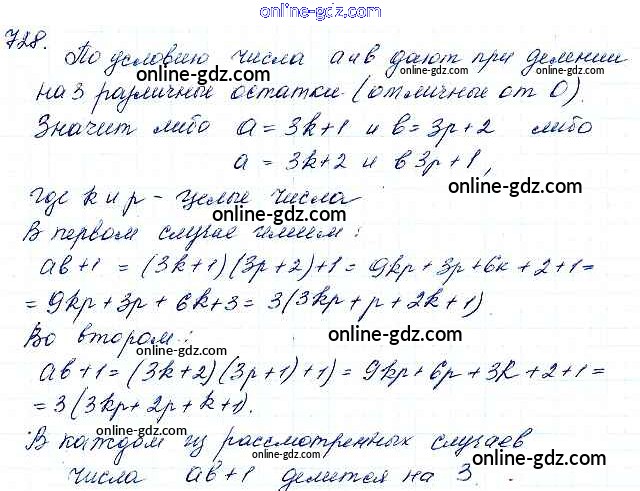 online-gdz.com
728.
По условию числа а и в дают при делении
online-gdz.com online-gdz.com
на 3 различные остатки (отличные от 0).
online-gdz.com online-gdz.com
Значит либо a = 3k+1 и в = 3p+2 либо
a = 3k+2 и в 3p+1,
online-gdz.com
где k и p - целые числа
online-gdz.com
В первом случае имеем:
online-gdz.com
ав+1 = (3k+1)(3p+2)+1 = 9kp+3p+6k+2+1=
online-gdz.com
= 9kp+3p+6k+3 = 3(3kp+p+2k+1)
Во втором:
online-gdz.com online-gdz.com
ав+1 = (3k+2)(3p+1)+1) = 9kp+6p+3k+2+1=
= 3(3kp+2p+k+1).
online-gdz.com online-gdz.com
В каждом из рассмотренных случаев
online-gdz.com
числа ав+1 делится на 3.
online-gdz.com